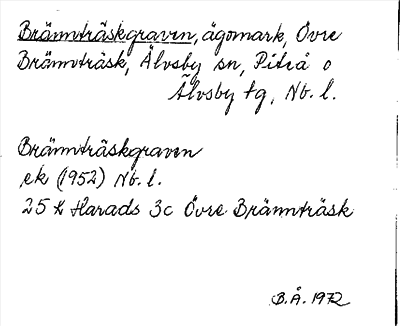 Brännträskgraven, ägomark, Övre
Brännträsk, Älvsby sn, Piteå o
Älvsby tg, Nb. l.
Brännträskgraven
ek (1952) Nb. l.
25 K Harads 3c Övre Brännträsk
B.Å. 1972